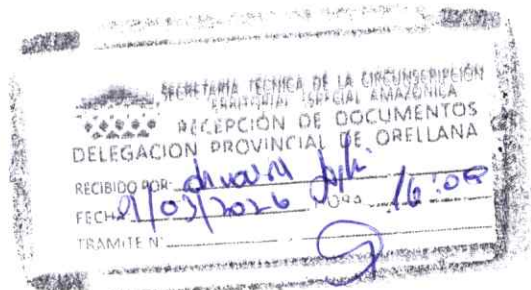 SECRETARÍA TÉCNICA DE LA CIRCUNSCRIPCIÓN
TERRITORIAL ESPECIAL AMAZÓNICA
RECEPCIÓN DE DOCUMENTOS
DELEGACION PROVINCIAL DE ORELLANA
RECIBIDO POR:
FECHA /03/2026 HORA 16:00
TRAMITE N°